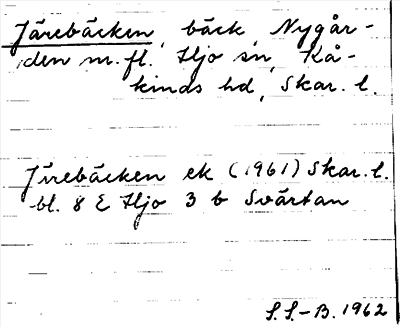 Järebäcken, bäck, Nygår-
den nr. fl. Hjo sn, Kå-
kinds hd, Skar. l.
Järebäcken ek (1961) Skar. l.
bl. 8 E Hjo 3 b Svärtan
S.S.-B. 1962